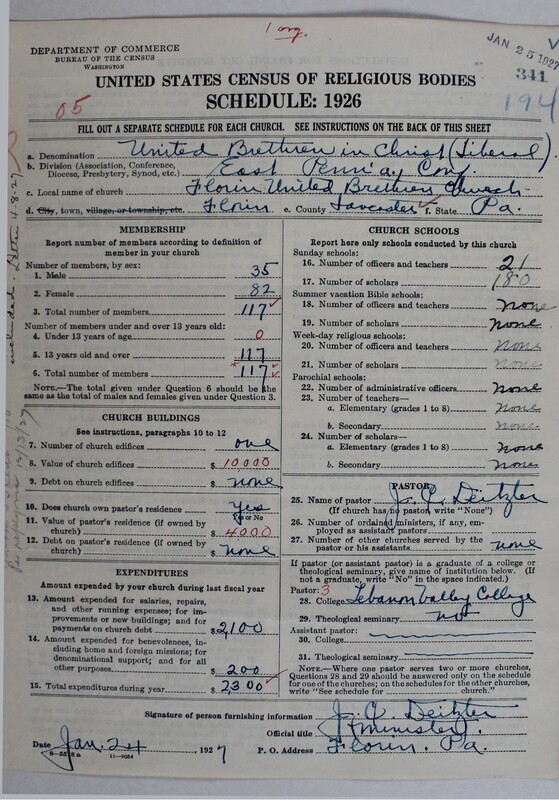 1 org.
JAN 25 1927
341
194
DEPARTMENT OF COMMERCE
BUREAU OF THE CENSUS
WASHINGTON
UNITED STATES CENSUS OF RELIGIOUS BODIES
SCHEDULE: 1926
05
FILL OUT A SEPARATE SCHEDULE FOR EACH CHURCH. SEE INSTRUCTIONS ON THE BACK OF THIS SHEET
a. Denomination United Brethren in Christ (Liberal)
b. Division (Association, Conference, Diocese, Presbytery, Synod, etc.) East Penn'a, Conf.
c. Local name of church Florin United Brethren Church
d. City, town, village, or township, etc. Florin e. County Lancaster f. State Pa.
MEMBERSHIP
Report number of members according to definition of member in your church
Number of members, by sex:
1. Male 35
2. Female 82
3. Total number of members 117
Number of members under and over 13 years old:
4. Under 13 years of age 0
5. 13 years old and over 117
6. Total number of members 117
NOTE.—The total given under Question 6 should be the same as the total of males and females given under Question 3.
CHURCH BUILDINGS
See instructions, paragraphs 10 to 12
7. Number of church edifices one
8. Value of church edifices $ 10000
9. Debt on church edifices $ none
10. Does church own pastor's residence? Yes
Yes or No
11. Value of pastor's residence (if owned by church) $ 4000
12. Debt on pastor's residence (if owned by church) $ none
EXPENDITURES
Amount expended by your church during last fiscal year
13. Amount expended for salaries, repairs, and other running expenses; for improvements or new buildings; and for payments on church debt $ 2,100
14. Amount expended for benevolences, including home and foreign missions; for denominational support; and for all other purposes $ 200
15. Total expenditures during year $ 2300
CHURCH SCHOOLS
Report here only schools conducted by this church
Sunday schools:
16. Number of officers and teachers 21
17. Number of scholars 180
Summer vacation Bible schools:
18. Number of officers and teachers none
19. Number of scholars None
Week-day religious schools:
20. Number of officers and teachers None
21. Number of scholars None
Parochial schools:
22. Number of administrative officers None
23. Number of teachers—
a. Elementary (grades 1 to 8) None
b. Secondary None
24. Number of scholars—
a. Elementary (grades 1 to 8) None
b. Secondary None
PASTOR
25. Name of pastor J. Q. Deitzler
(If church has no pastor, write "None")
26. Number of ordained ministers, if any, employed as assistant pastors
27. Number of other churches served by the pastor or his assistants none
If pastor (or assistant pastor) is a graduate of a college or theological seminary, give name of institution below. (If not a graduate, write "No" in the space indicated.)
Pastor: 3
28. College Lebanon Valley College
29. Theological seminary no
Assistant pastor:
30. College
31. Theological seminary
NOTE.—Where one pastor serves two or more churches, Questions 28 and 29 should be answered only on the schedule for one of the churches; on the schedules for the other churches, write "See schedule for church."
Signature of person furnishing information J. Q. Deitzler
Official title Minister
Date Jan. 24, 1927 P. O. Address Florin, Pa.
8-5518a 11-9024